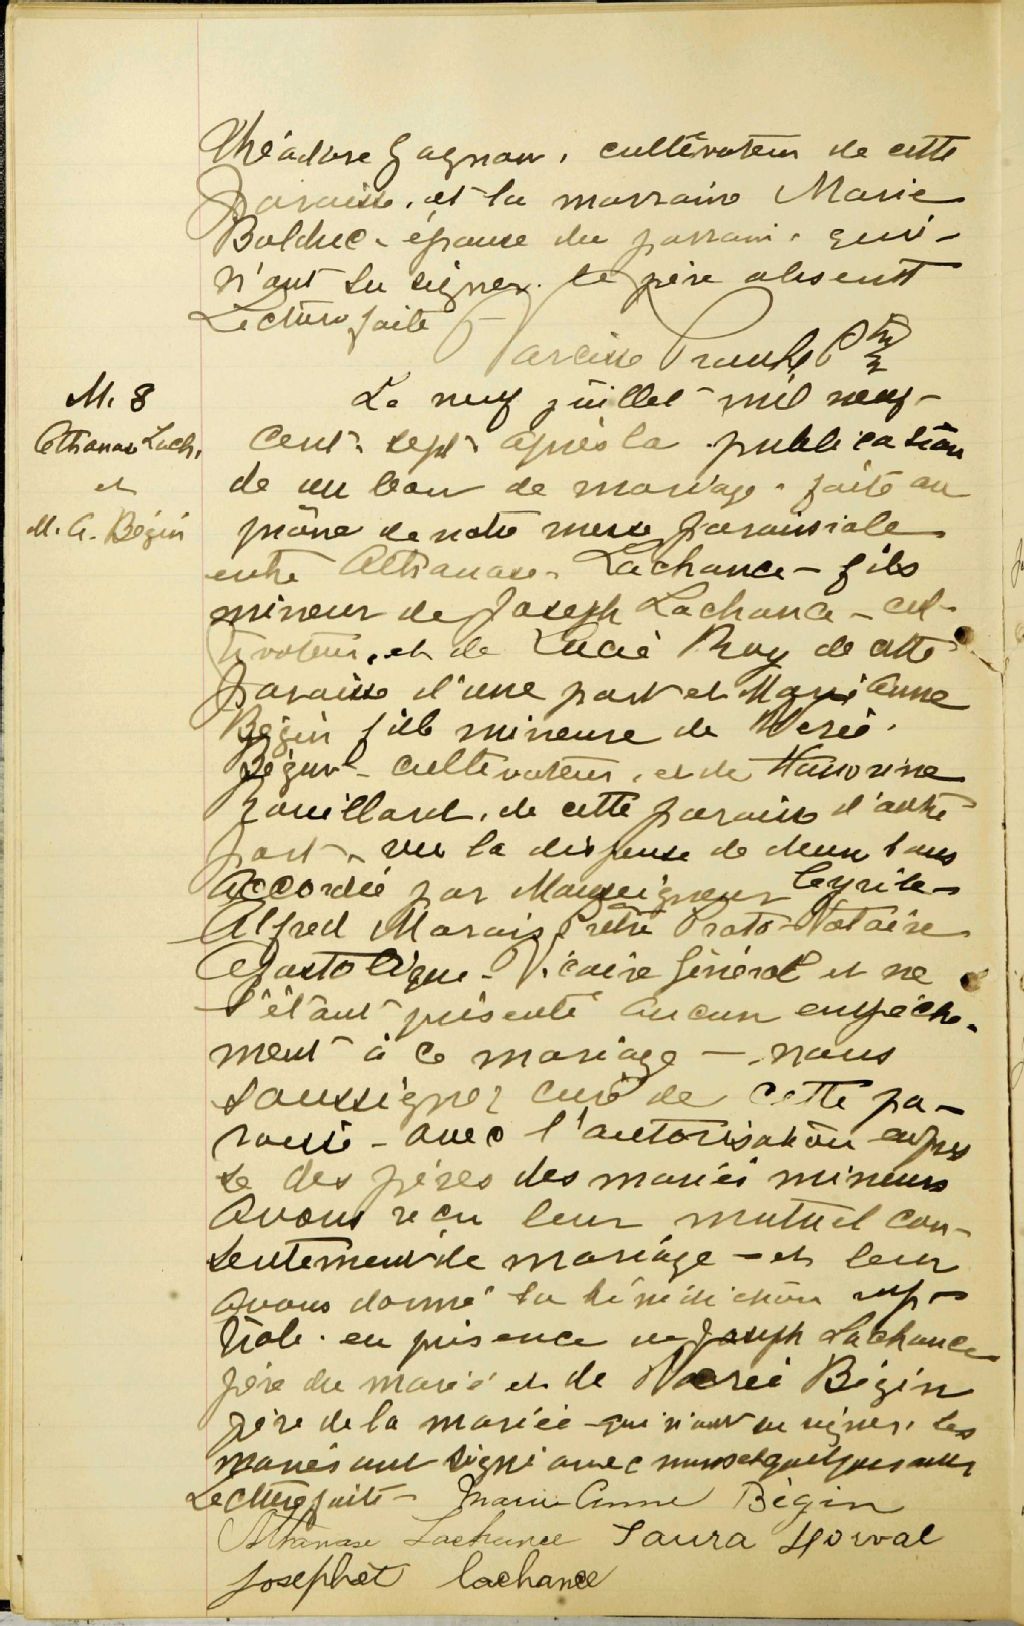 Théodore Gagnon, cultivateur de cette
paroisse, et la marraine Marie
Bolduc - épouse du parrain, qui -
n'ont su signer. le père absent
Lecture faite
Narcisse Proulx Ptre
M. 8
Athanase Lach.
et
M. A. Bégin
Le neuf juillet mil neuf -
cent - sept - après la publication
de un ban de mariage - faite au
prône de notre messe paroissiale
entre Athanase - Lachance - fils
mineur de Joseph Lachance - cul-
tivateur, et de Lucie Roy de cette
paroisse d'une part et Marie Anne
Bégin fille mineure de
Bégin - cultivateur, et de Honorine
Rouillard, de cette paroisse d'autre
part, vu la dispense de deux bans
Accordée par Monseigneur Cyrille -
Alfred Marois Prêtre Proto-Notaire
Apostolique - Vicaire Général et ne
s'étant présenté aucun empêche-
ment à ce mariage - nous
soussignez curé de cette pa-
roisse - avec l'autorisation expres
se des pères des mariés mineurs
Avons reçu leur mutuel con-
sentement de mariage - et leur
avons donné la bénédiction nup-
tiale. en présence de Joseph Lachance
père du marié et de Bégin
père de la mariée - qui n'ont su signer. Les
mariés ont signé avec nous et quelques
Lecture faite - Marie Anne Bégin
Athanase Lachance Laura Morval
Josephat Lachance